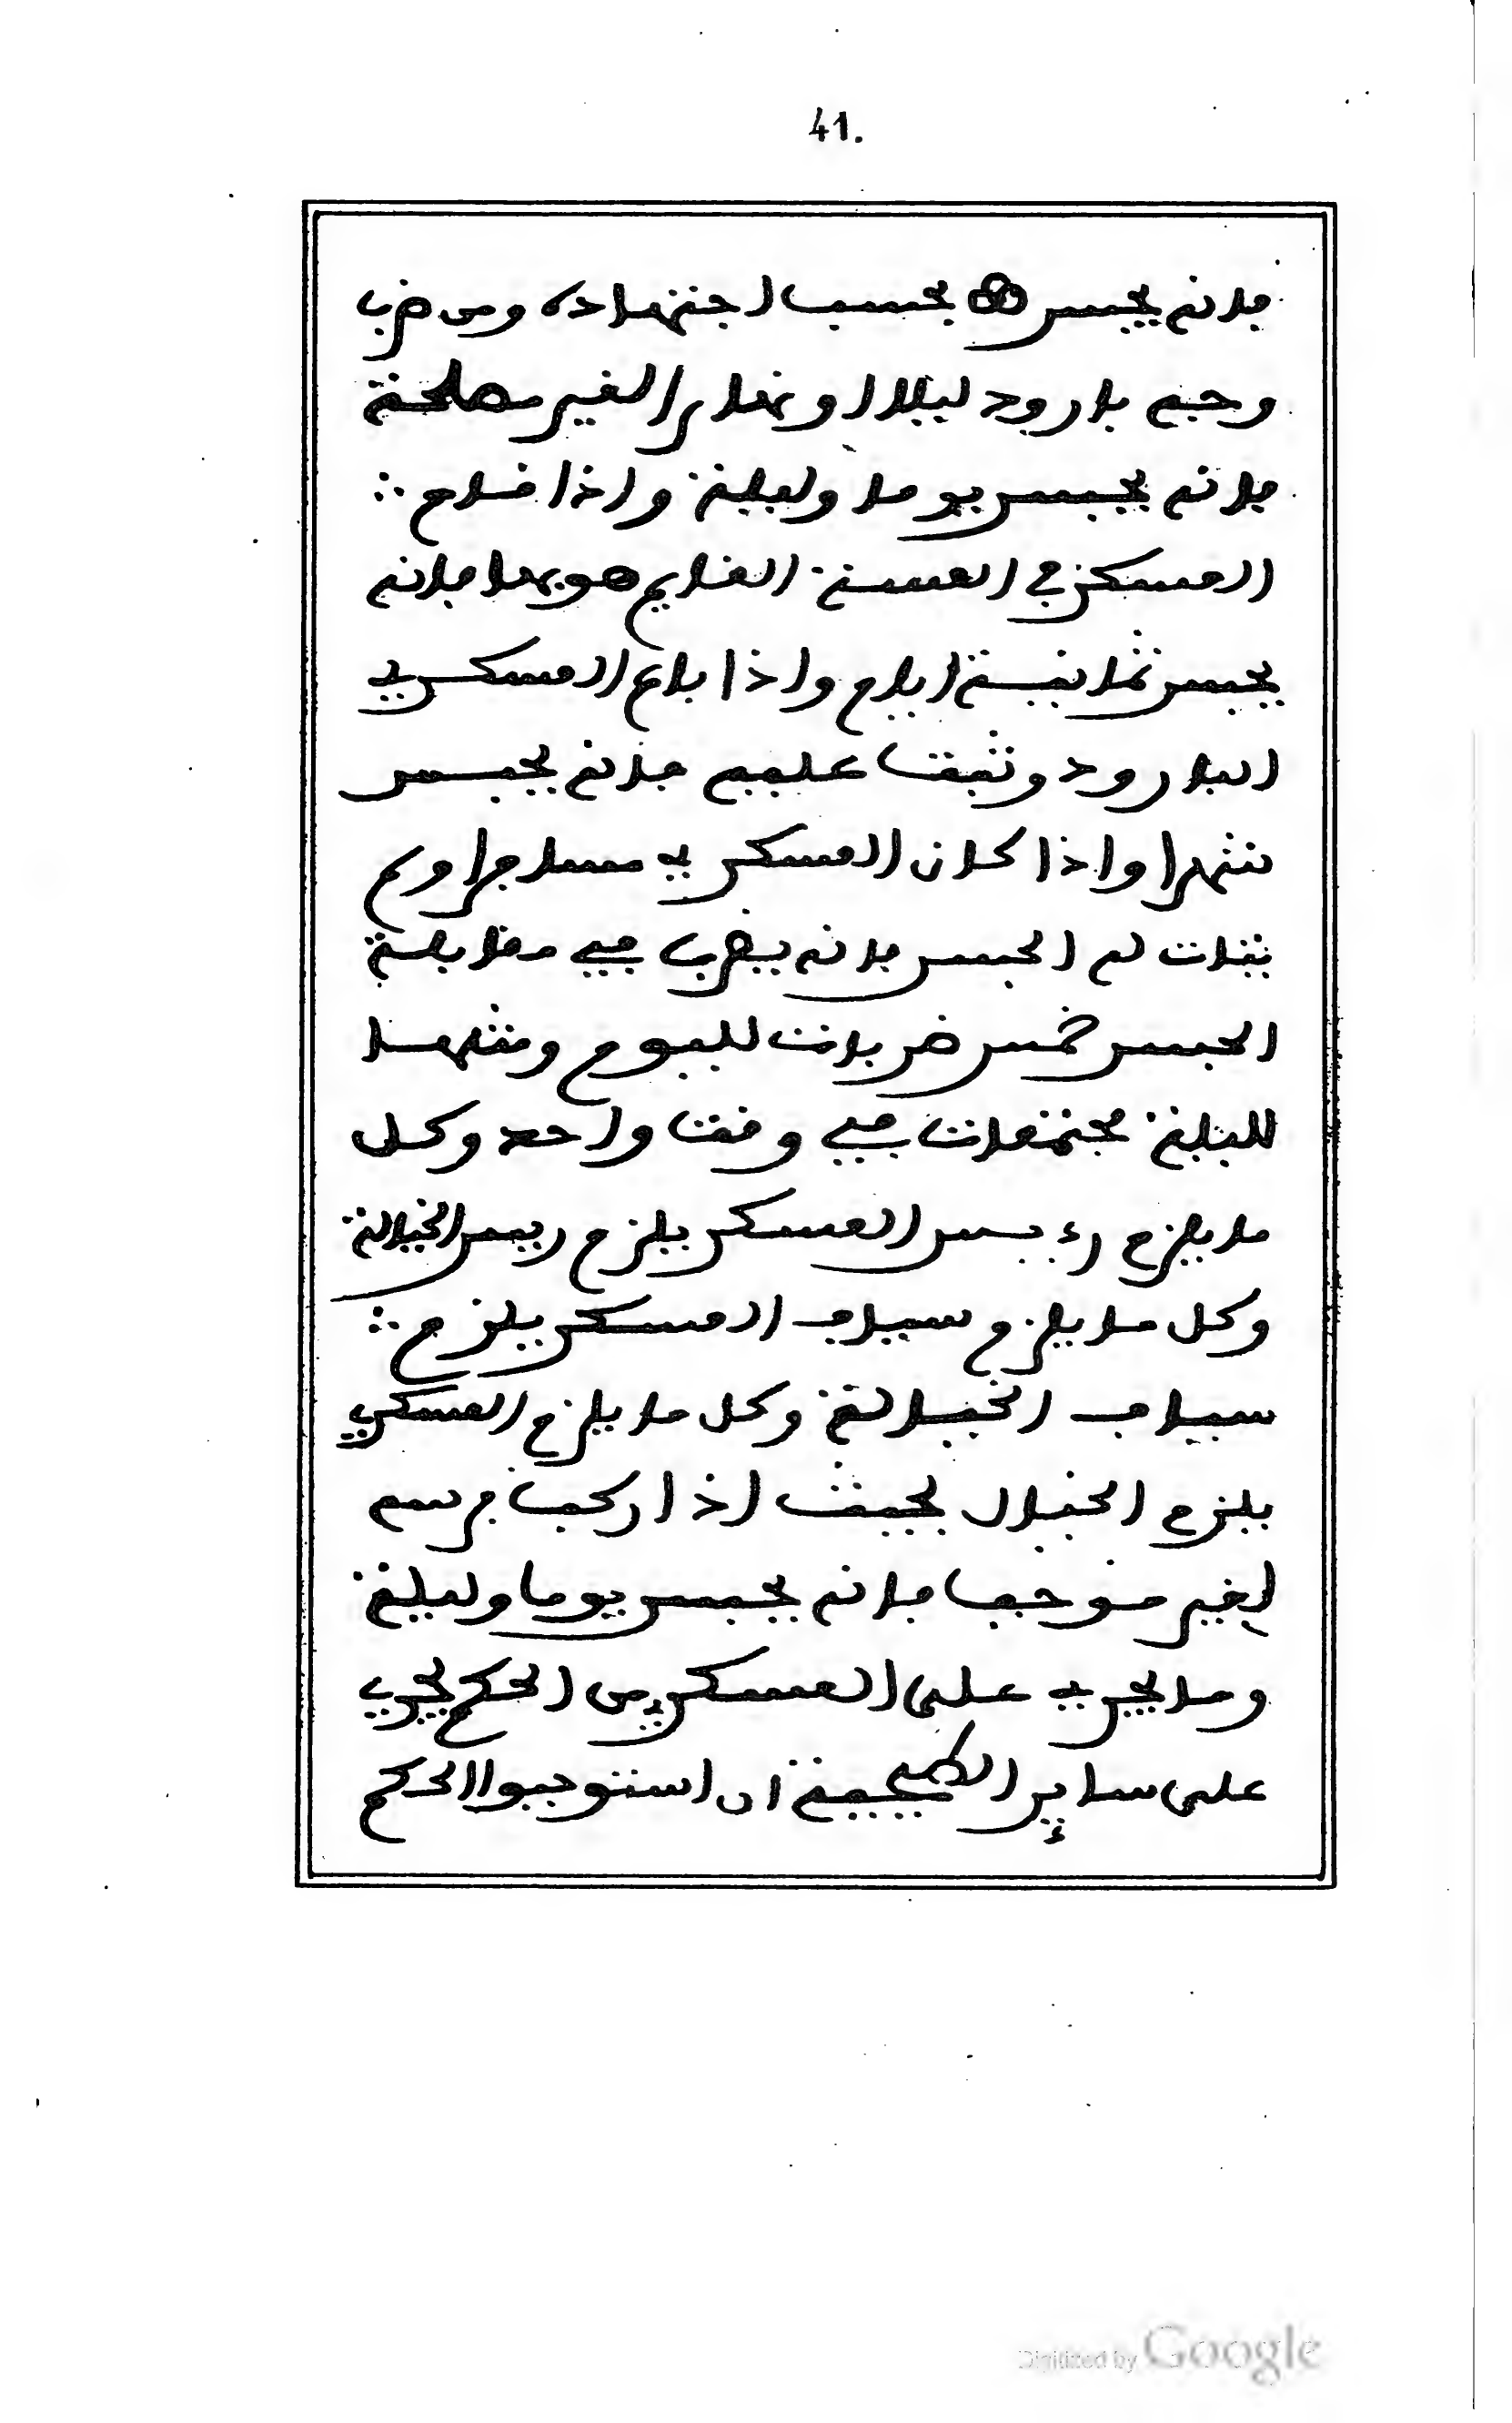 41.
فانه يحبس بحسب اجتهاده ومن ضرب
وجه بارود ليلا او نهارا لغير مصلحة
فانه يحبس يوما وليلة واذا نام ∴
العسكري في العسة القايم هو بها فانه
يحبس ثمانية ايام واذا باع العسكري
البارود وثبت عليه فانه يحبس
شهرا واذا كان العسكري مسافرا ولم
يتات له الحبس فانه يضرب في مقابلة
الحبس خمس ضربات لليوم ومثلها
لليلة مجتمعات في وقت واحد وكل
ما يلزم رءيس العسكر يلزم رييس الخيالة
وكل ما يلزم سياف العسكر يلزم ∴
سياف الخيالة وكل ما يلزم العسكري
يلزم الخيال بحيث اذا ركب فرسه
لغير موجب فانه يحبس يوما وليلة
وما يجري على العسكريين الحكم يجري
على ساير الطبجية ان استوجبوا الحكم
Digitized by Google